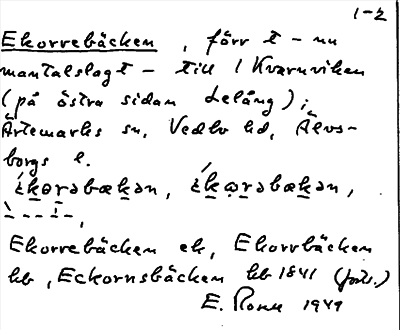 1-2
Ekorrebäcken, förr t - nu
mantalslagt - till 1 Kvarnviken
(på östra sidan Lelång) i
Ärtemarks sn, Vedbo hd, Älvs-
borgs l.
Ekorrebäcken ek, Ekorrbäcken
hb, Eckornsbäcken hb 1841
E. 1949